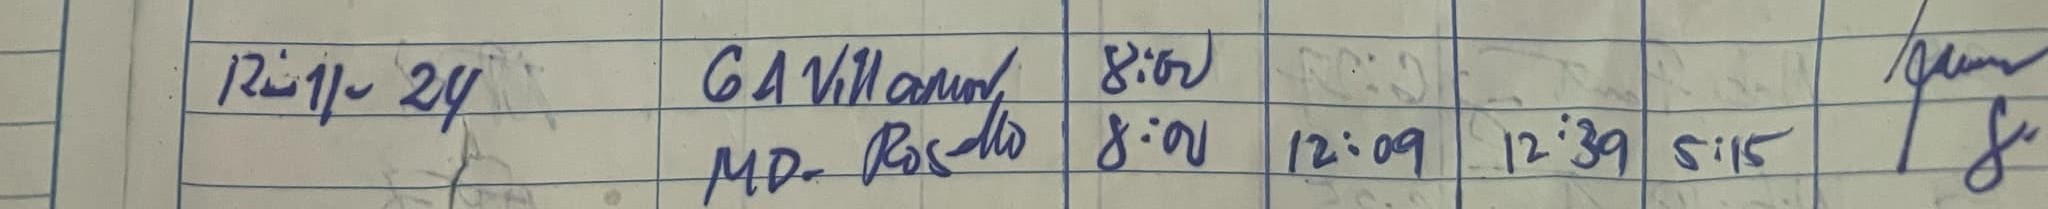 12-11-24 GA Villanueva 8:00
MD. Rosello 8:01 12:09 12:39 5:15